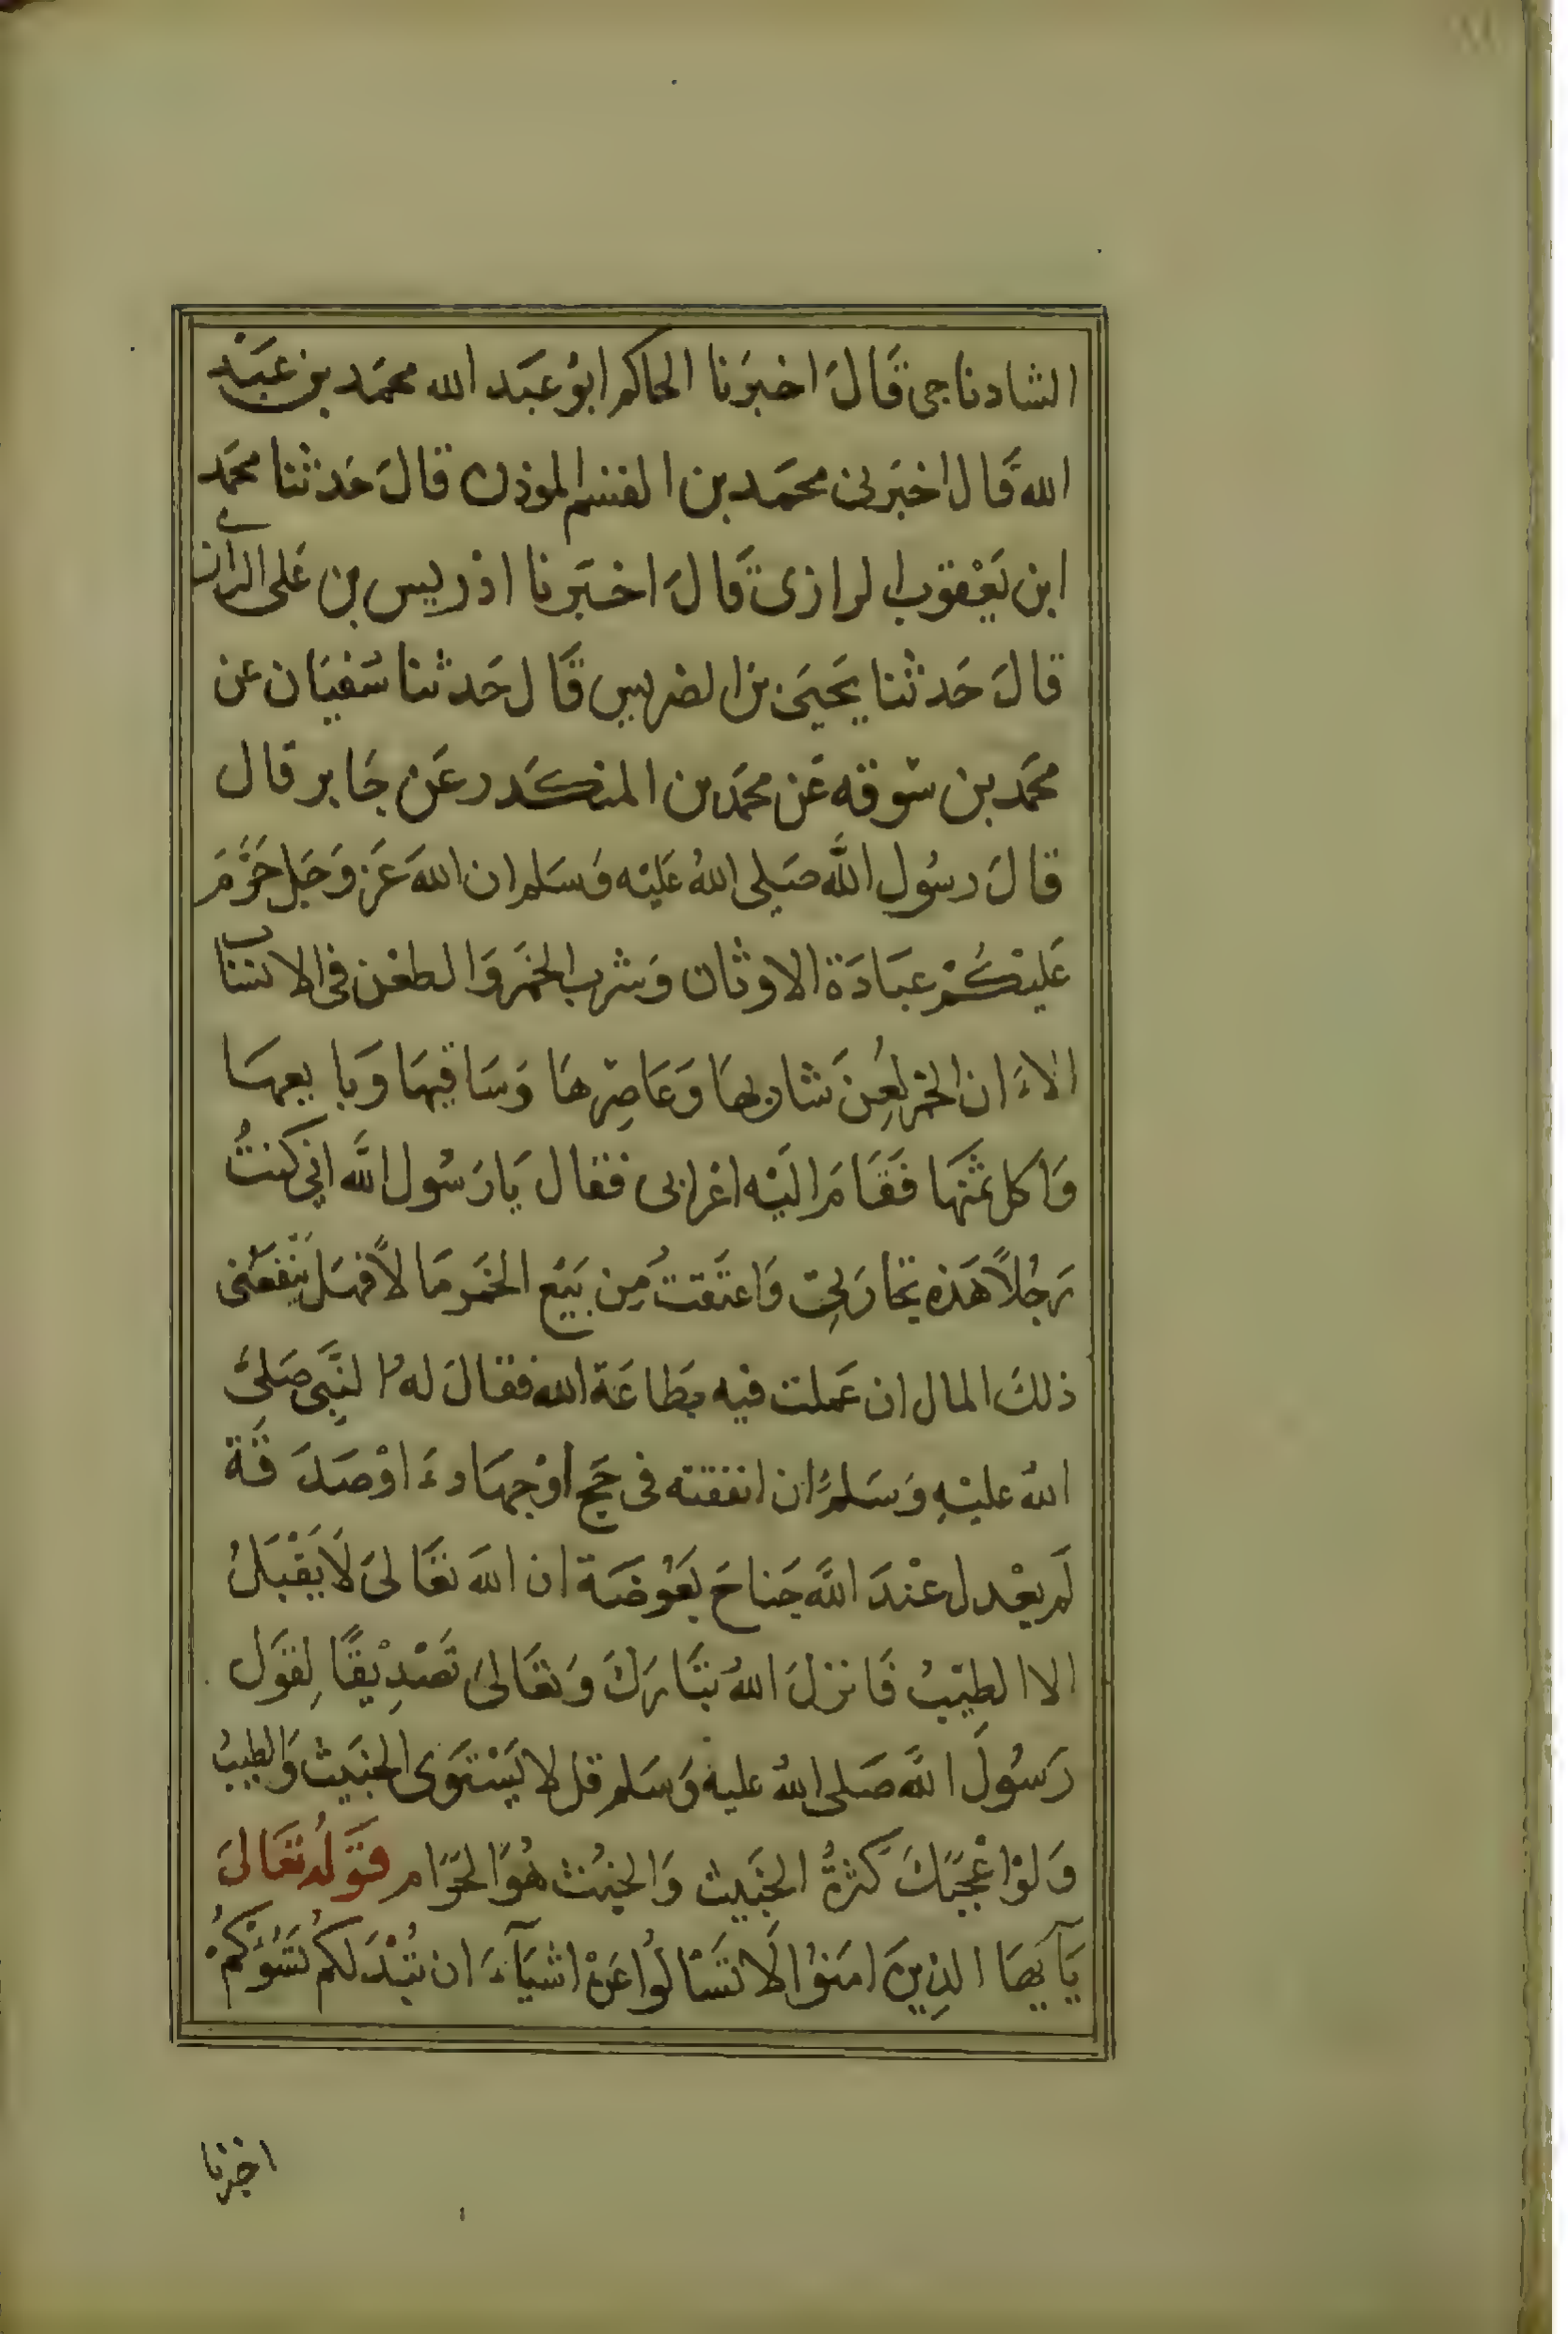 الشادناجى قَالَ اخبرَنا الحاكم ابوُ عبَد الله محمَد بن عَبْد
الله قَال اخبَرنى محمَد بن القسم الموذن قالَ حَدثنا محمَد
ابن يَعْقوب الرازى قَالَ اخبَرنا ادريس بن عَلى الرازى
قالَ حَدثنا يَحيىَ بن الضريس قَال حَدثنا سُفيَان عن
محَمد بن سوقه عَن محمَد بن المنكَدر عَن جَابر قال
قالَ رسُول اللَّه صَلى اللهُ عَليْه وَسَلم ان اللهَ عَز وَجَل حَرَّمَ
عَليْكُمْ عبَادَة الاوثان وَشرب الخمَر وَالطعْن فى الانسَاب
الاءَ ان الخمر لُعِنَ شاربها وَعَاصِرهَا وَسَاقيهَا وَبايعهَا
وَاكل ثمَنهَا فَقَامَ اليَْه اعْرابى فقال يَا رَسُول اللَّه انى كنتُ
رَجُلاً هَذه تجارَتى وَاعتَقتُ مِن بَيْع الخمَر مَالاً فهَل يَنْفعَنى
ذلكَ المال ان عَملت فيه بطَاعَة الله فقالَ لهُ النَّبِى صَلىَّ
اللهُ عليْهِ وَسَلمَّ ان انفقته فى حَج اوْ جهَاد اوْ صَدَقَة
لَم يعْدل عنْدَ اللَّه جَناحَ بَعُوضَة ان اللهَ تعَالىَ لَا يَقْبَلُ
الا الطيّبُ فَانزلَ اللهُ تبَّارَكَ وَتعَالىَ تَصْدِيْقًا لِقوَل
رَسُولَ اللَّه صَلى اللهُ عليه وَسَلم قل لا يَسْتوَى الخبَيث وَالطيبُ
وَلوْ اعْجبَكَ كَثرَةُ الخبَيث وَالخبُث هُوَ الحرَّام قوَلهُ تعَالىَ
يَآ يَها الذِينَ امَنوُا لَا تَسْالُوا عَنْ اشيَآءَ ان تُبْدَ لكم تَسُوَكُمْ
اخبرنا